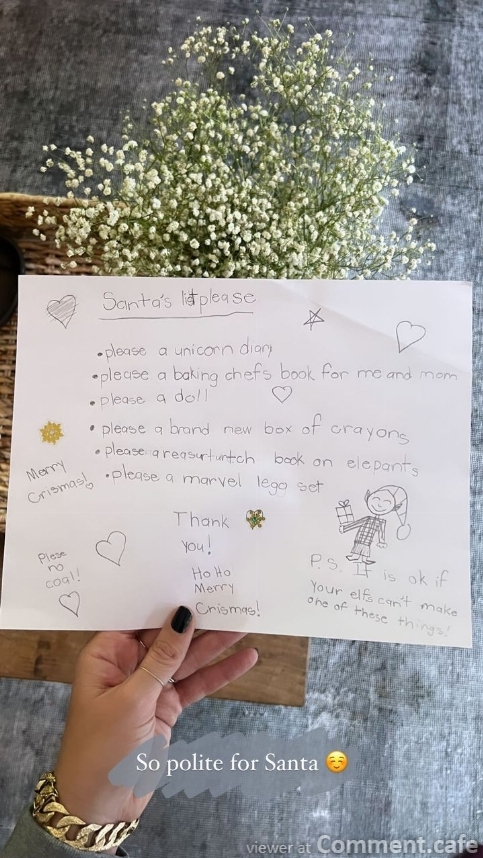 Santa's list please
• please a unicorn diary
• please a baking chefs book for me and mom
• please a doll
• please a brand new box of crayons
• please a reasurturtch book on elepants
• please a marvel lego set
Merry
Crismas!
Thank
you!
Plese
no
coal!
Ho Ho
Merry
Crismas!
P.S. It is ok if
your elfs can't make
one of these things!
So polite for Santa ☺️
viewer at Comment.cafe